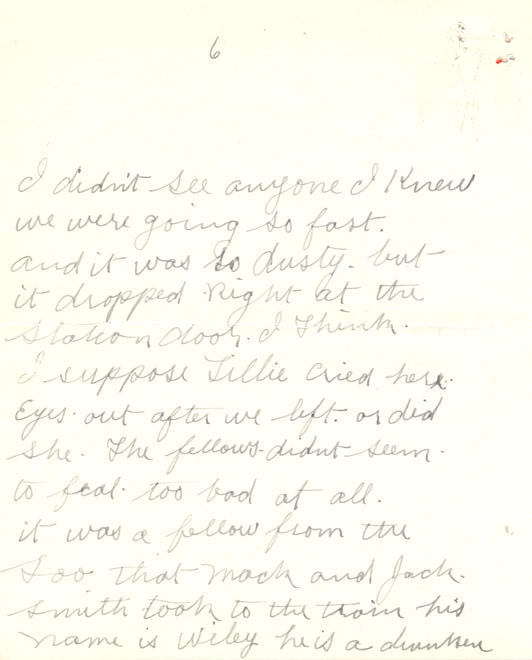 6
I didn't see anyone I Knew
we were going so fast.
and it was so dusty. but
it dropped Right at the
station door. I Think.
I suppose Tillie cried her
Eyes out after we left. or did
she. The fellows didnt seem
to feal too bad at all.
it was a fellow from the
Soo that Mack and Jack
Smith took to the train his
name is Wiley he is a drunken